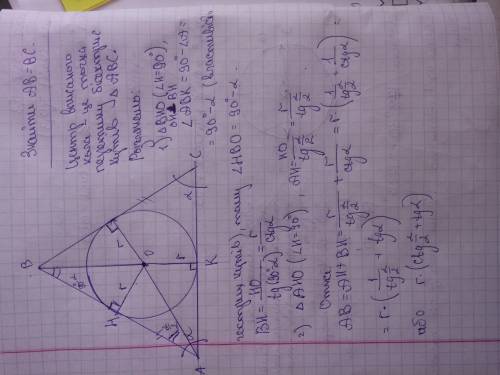 Знайти AB=BC.
Центр вписаного
кола - це точка
перетину бісектрис
кутів △ABC.
Розглянемо:
1) △BHO (∠H=90°),
OH⊥BH
∠ABK = 90°-∠A =
= 90°-α (властивість
гострих кутів), тому ∠HBO = 90°-α.
BH = HO/tg(90-α) = r/ctgα
2) △AHO (∠H=90°), AH = HO/tg α/2 = r/tg α/2
Отже
AB = AH + BH = r/tg α/2 + r/ctgα = r·(1/tg α/2 + 1/ctgα) =
= r·(1/tg α/2 + tgα)
або r·(ctg α/2 + tgα)
B
H
r
r
r
O
α/2
α
A
K
α
C